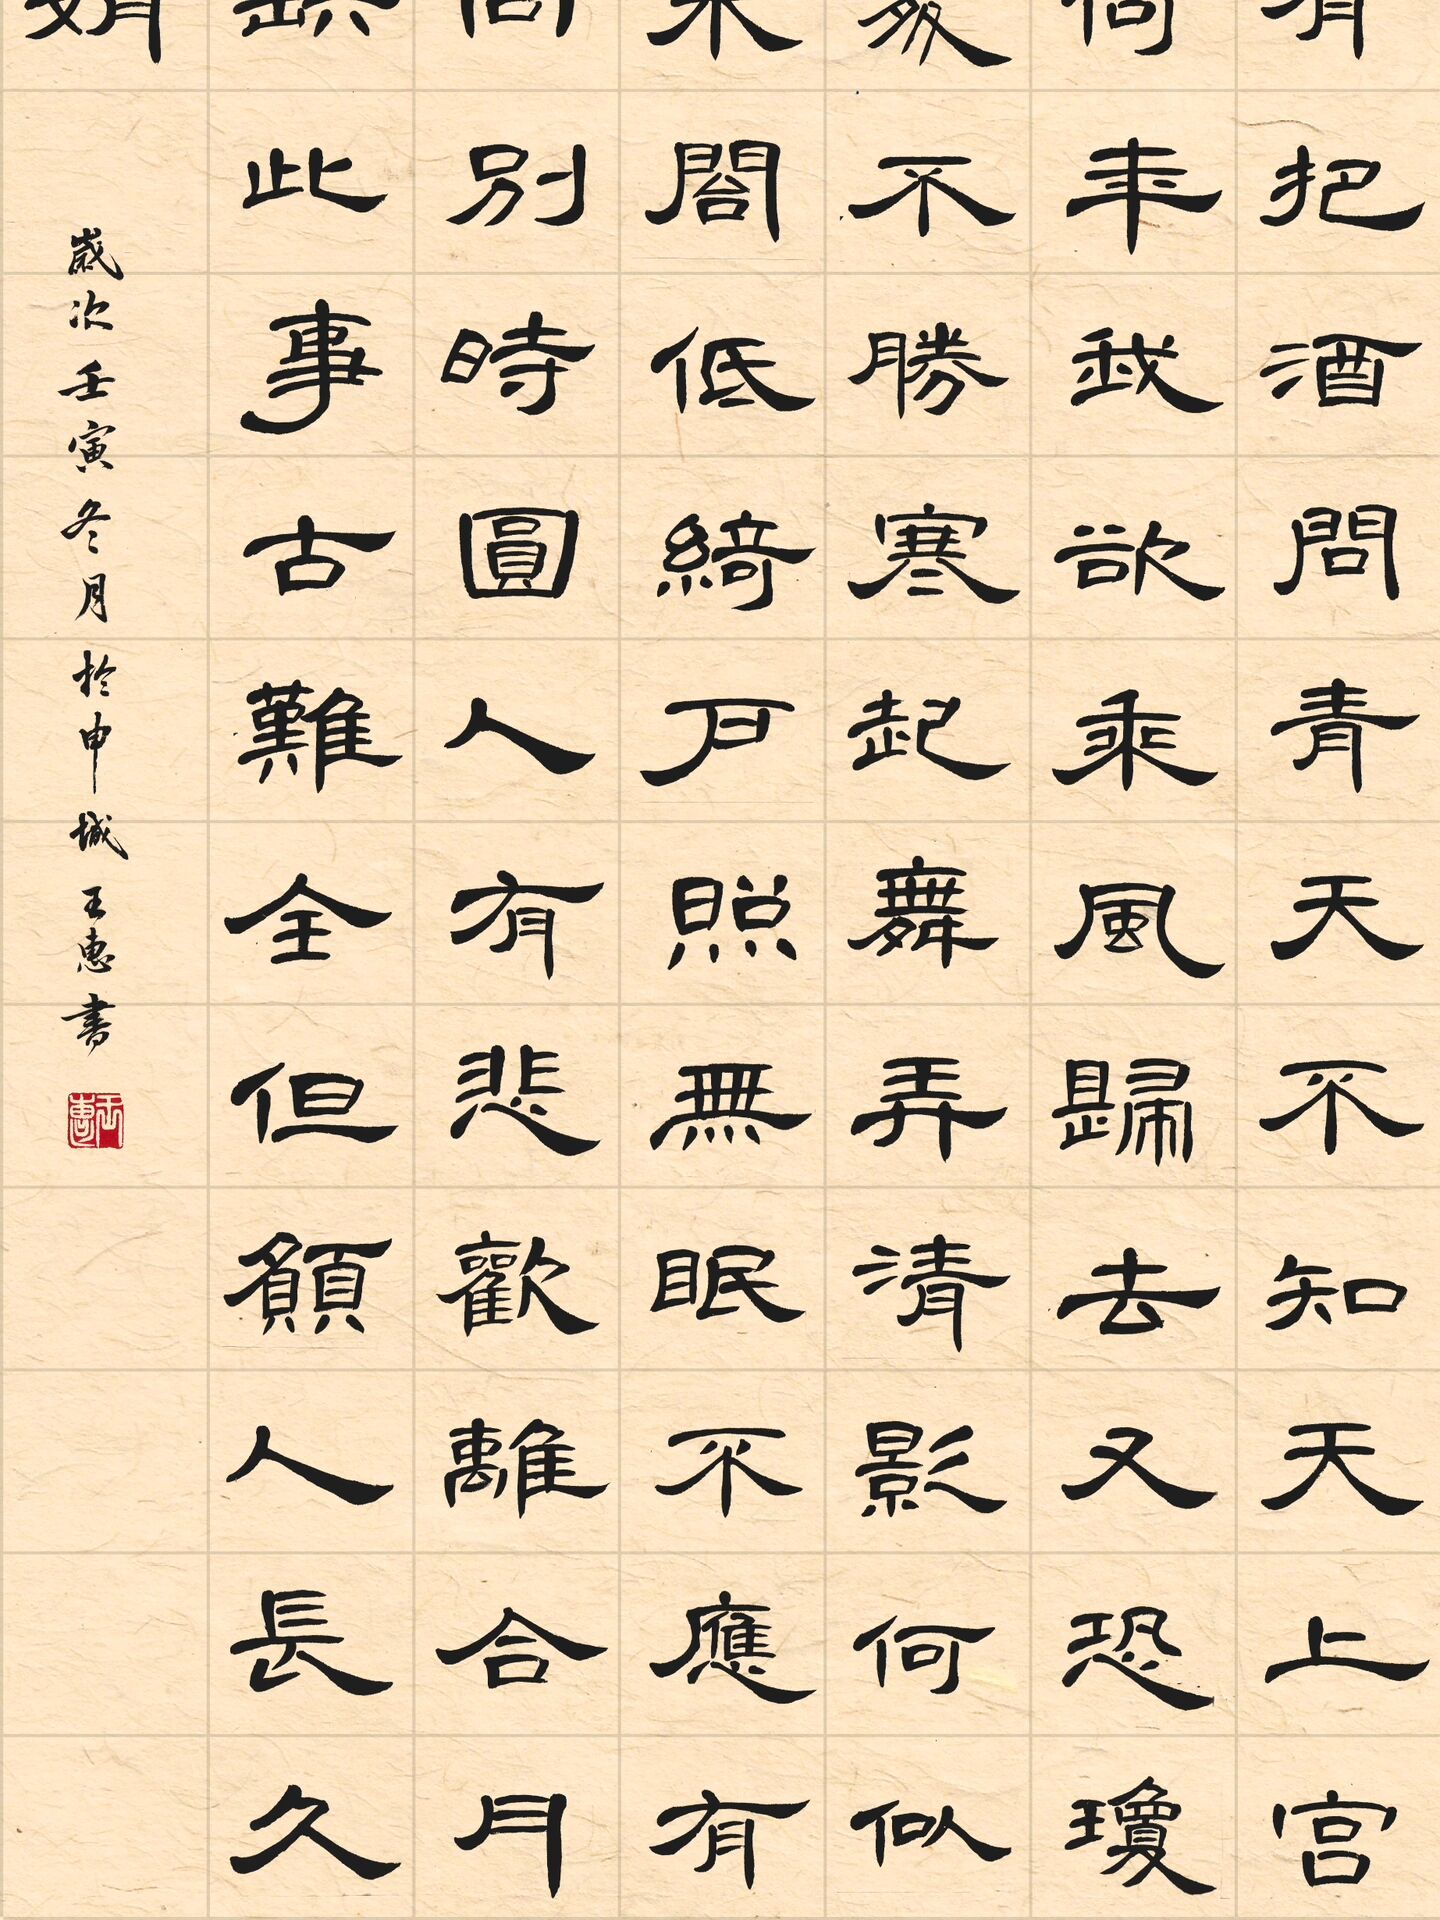 有把酒問青天不知天上宮
何年我欲乘風歸去又恐瓊
不勝寒起舞弄清影何似
朱閣低綺戶照無眠不應有
向別時圓人有悲歡離合月
缺此事古難全但願人長久
娟
歲次壬寅冬月於申城王惠書
王惠